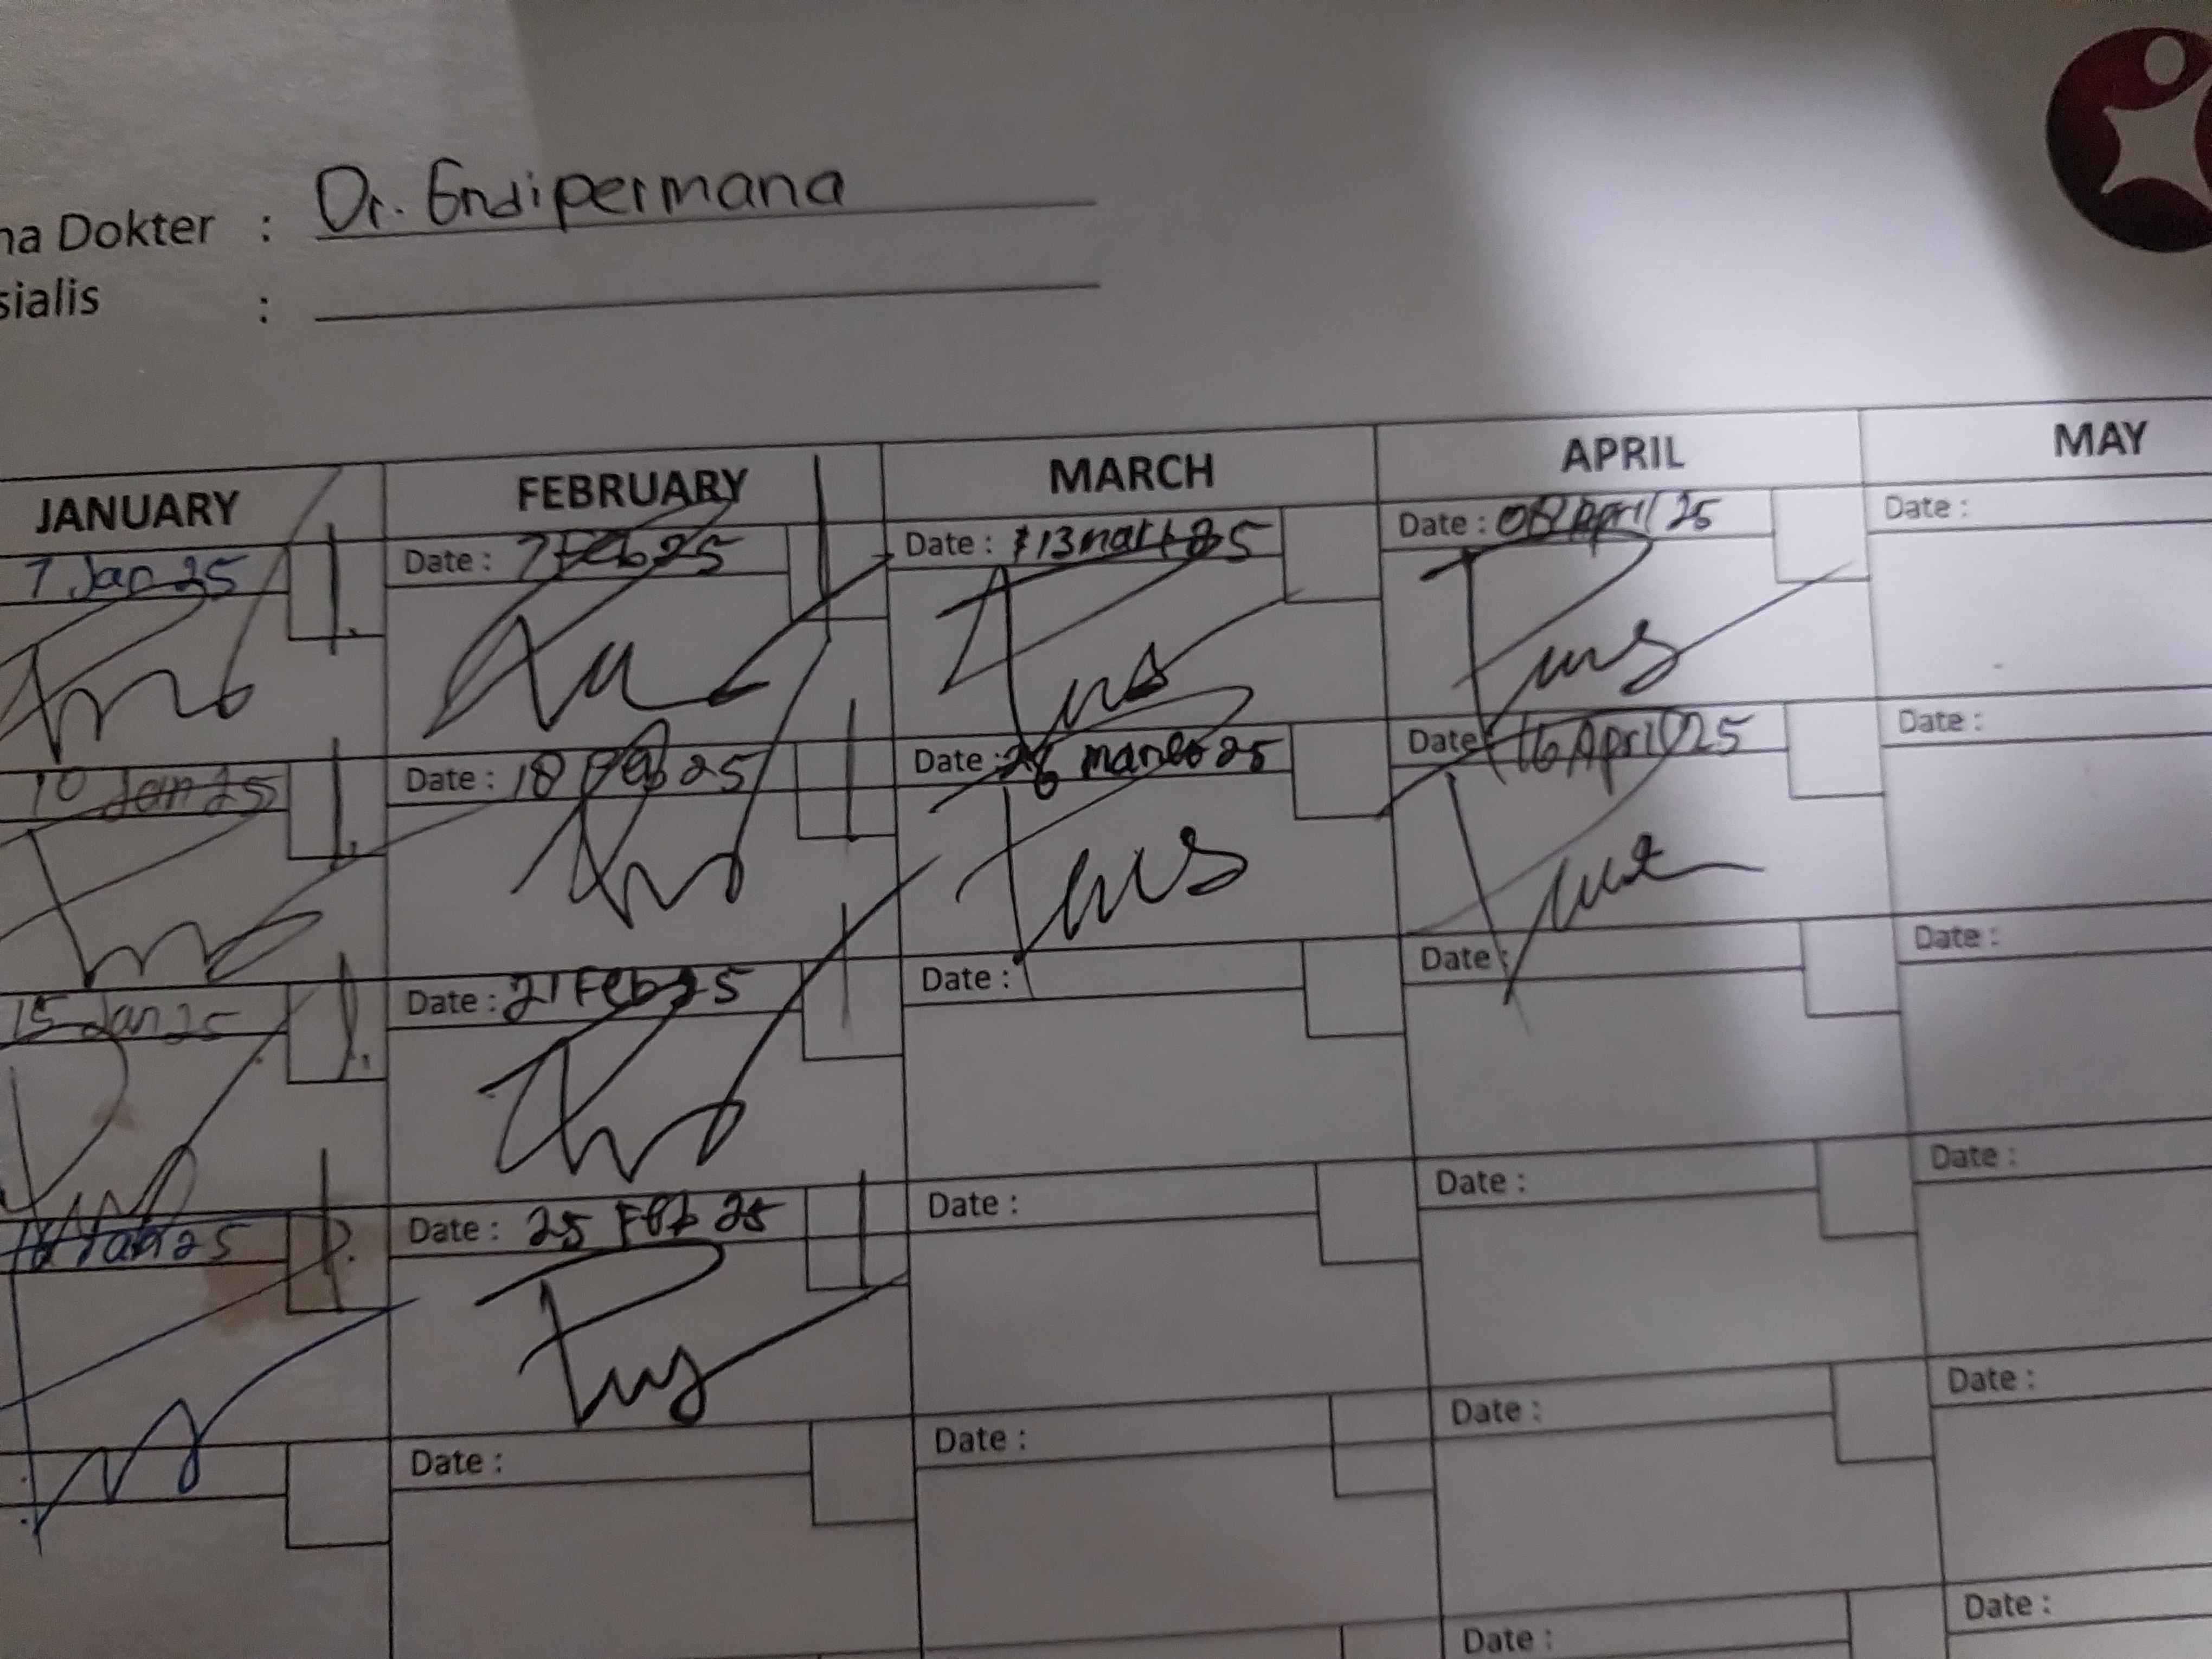 na Dokter : Dr. Endipermana
sialis :
JANUARY FEBRUARY MARCH APRIL MAY
7 Jan 25 Date : 7 Feb 25 Date : 13 Date : 08 April 25 Date :
10 Jan 25 Date : 18 Feb 25 Date : 26 25 Date : 16 April 25 Date :
15 Jan 25 Date : 21 Feb 25 Date : Date : Date :
25 Date : 25 Feb 25 Date : Date : Date :
Date : Date : Date : Date :
Date : Date :